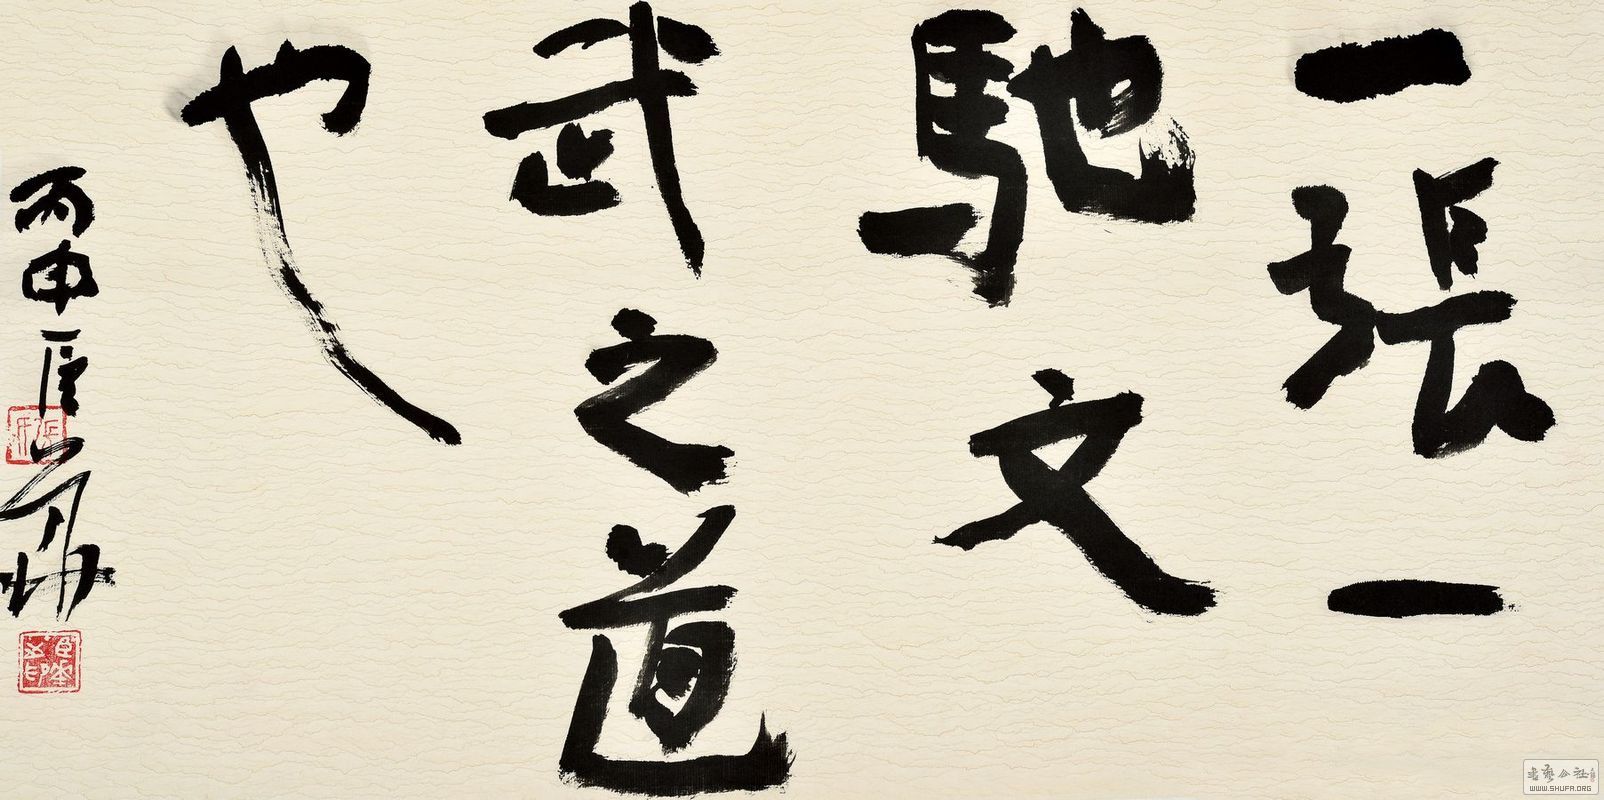 一張一
馳文
武之道
也
丙申
书艺公社
WWW.SHUFA.ORG